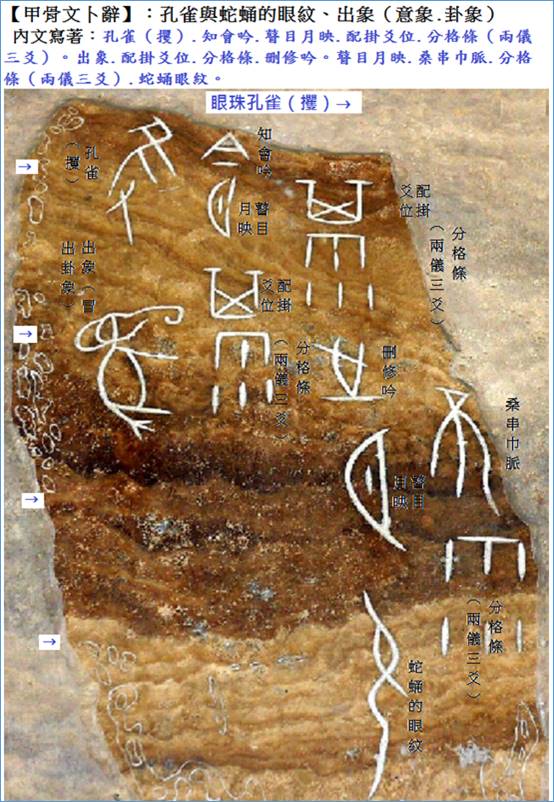 【甲骨文卜辭】：孔雀與蛇蛹的眼紋、出象（意象.卦象）
內文寫著：孔雀（攫）.知會吟.瞽目月映.配掛爻位.分格條（兩儀
三爻）。出象.配掛爻位.分格條.刪修吟。瞽目月映.桑串巾脈.分格
條（兩儀三爻）.蛇蛹眼紋。
眼珠孔雀（攫）→
孔雀
（攫）
知會吟
瞽目
月映
配掛
爻位
分格條
（兩儀三爻）
出象（冒
出卦象）
配掛
爻位
分格條
（兩儀三爻）
刪修吟
瞽目
月映
桑串巾脈
分格條
（兩儀三爻）
蛇蛹的眼紋
→
→
→
→